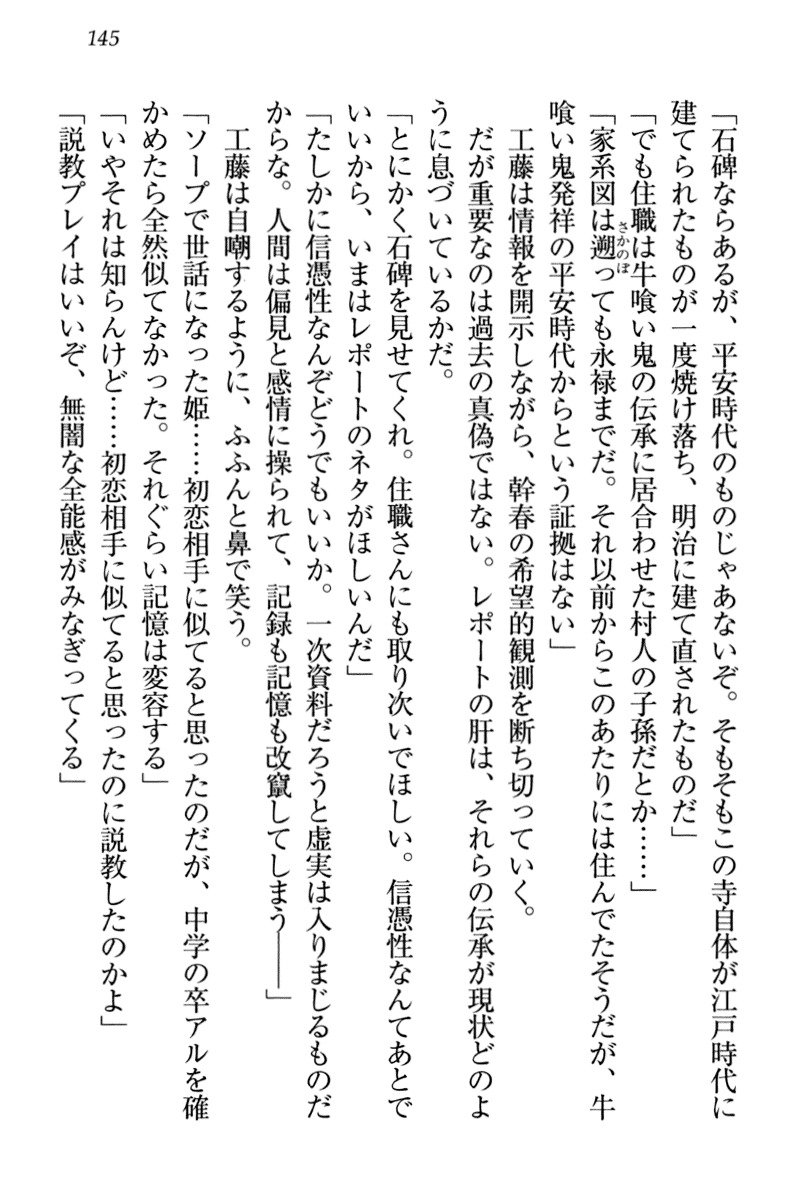 145
「石碑ならあるが、平安時代のものじゃあないぞ。そもそもこの寺自体が江戸時代に
建てられたものが一度焼け落ち、明治に建て直されたものだ」
「でも住職は牛喰い鬼の伝承に居合わせた村人の子孫だとか……」
「家系図は遡っても永禄までだ。それ以前からこのあたりには住んでたそうだが、牛
さかのぼ
喰い鬼発祥の平安時代からという証拠はない」
工藤は情報を開示しながら、幹春の希望的観測を断ち切っていく。
だが重要なのは過去の真偽ではない。レポートの肝は、それらの伝承が現状どのよ
うに息づいているかだ。
「とにかく石碑を見せてくれ。住職さんにも取り次いでほしい。信憑性なんてあとで
いいから、いまはレポートのネタがほしいんだ」
「たしかに信憑性なんぞどうでもいいか。一次資料だろうと虚実は入りまじるものだ
からな。人間は偏見と感情に操られて、記録も記憶も改竄してしまう――」
工藤は自嘲するように、ふふんと鼻で笑う。
「ソープで世話になった姫……初恋相手に似てると思ったのだが、中学の卒アルを確
かめたら全然似てなかった。それぐらい記憶は変容する」
「いやそれは知らんけど……初恋相手に似てると思ったのに説教したのかよ」
「説教プレイはいいぞ、無闇な全能感がみなぎってくる」